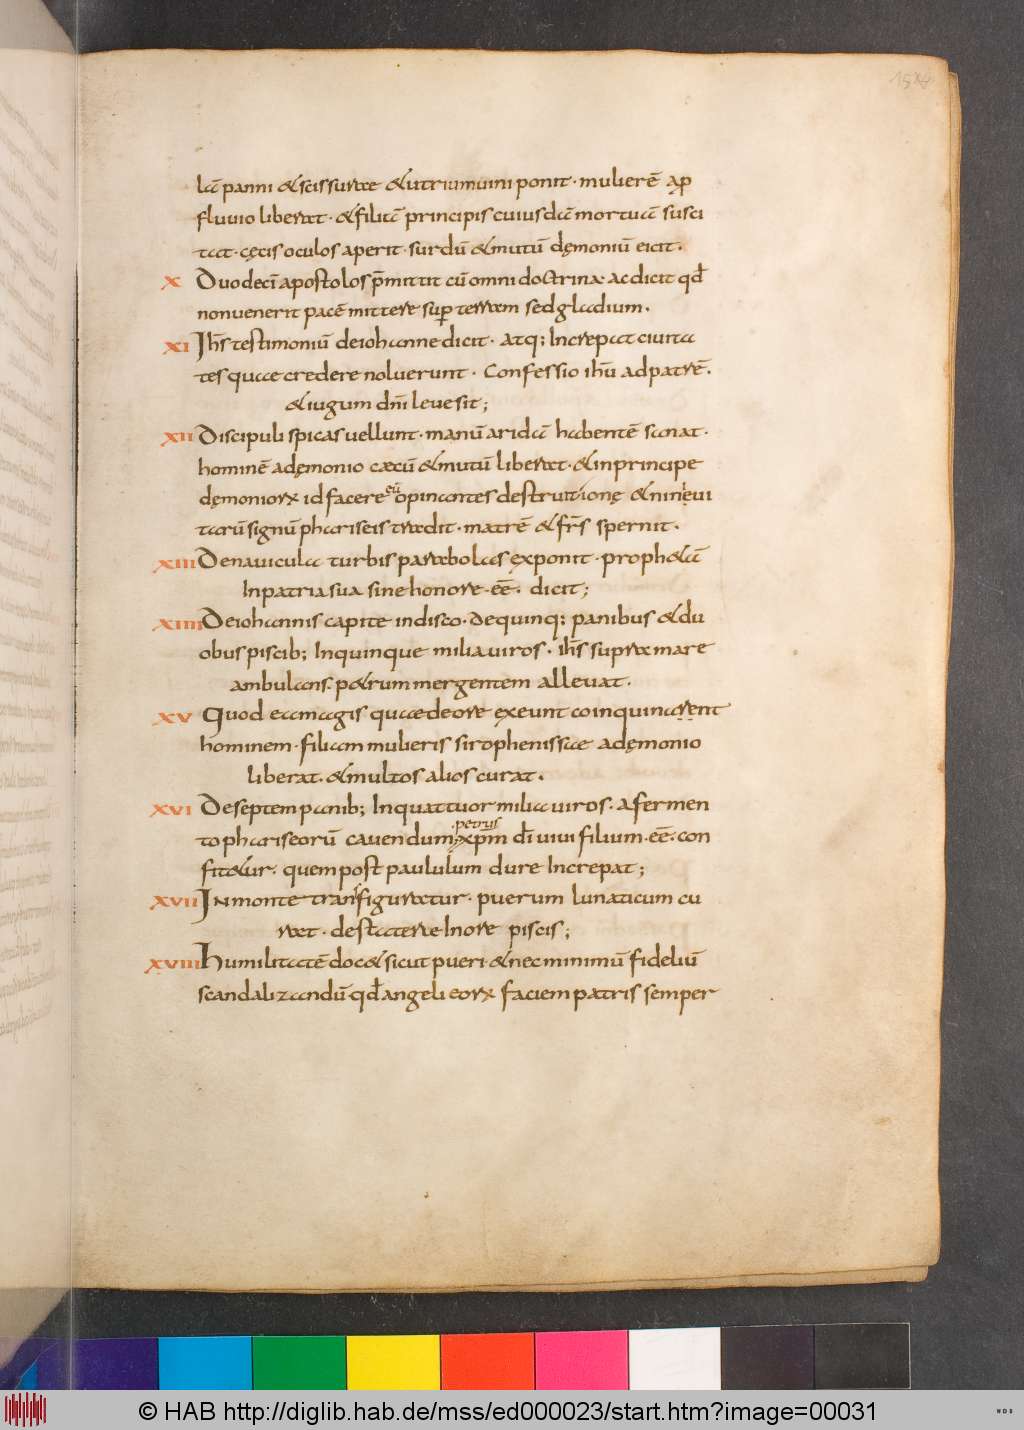 15r
lū panni &scissurae &utriumuini ponit · mulierē ap
fluuio liberat · &filiū principis cuiusdā mortuū susci
tat · cęcis oculos aperit · surdū &mutū dęmoniū eicit ·
X Duodecī apostolos p̄mittit cū omni doctrina · ac dicit qđ
nonuenerit pacē mittere sup terram sed gladium ·
XI Ihs̄ testimoniū deiohanne dicit · atq; Increpat ciuita
tes quae credere noluerunt · Confessio ihū ad patrē ·
&iugum dn̄i leue sit;
XII Discipuli spicas uellunt · manū aridā habentē sanat ·
hominē ademonio caecū &mutū liberat · &inprincipe
dęmoniorꝝ id facere eū opinantes destruitionę &niniui
tarū signū phariseis tradit · matrē &fr̄s spernit ·
XIII Denauicula turbis parabolas exponit · proph&ā
Inpatria sua sine honore · eē · dicit;
XIIII Deiohannis capite indisco · dequinq; panibus &du
obus piscib; Inquinque milia uiros · ihs̄ supra mare
ambulans · p&rum mergentem alleuat ·
XV Quod ea magis quae deore exeunt coinquinarent
hominem · filiam mulieris sirophenissae ademonio
liberat · &multos alios curat ·
XVI Deseptem panib; Inquattuor milia uiros · afermen
to phariseorū cauendum · petrus xpm dī uiui filium · eē · con
fit&ur · quem post paululum dure Increpat;
XVII Inmonte transfiguratur · puerum lunaticum cu
rat · destatere Inore piscis;
XVIII Humilitatē doc& sicut pueri · &nec minimū fideliū
scandalizandū qđ angeli eorꝝ faciem patris semper
© HAB http://diglib.hab.de/mss/ed000023/start.htm?image=00031